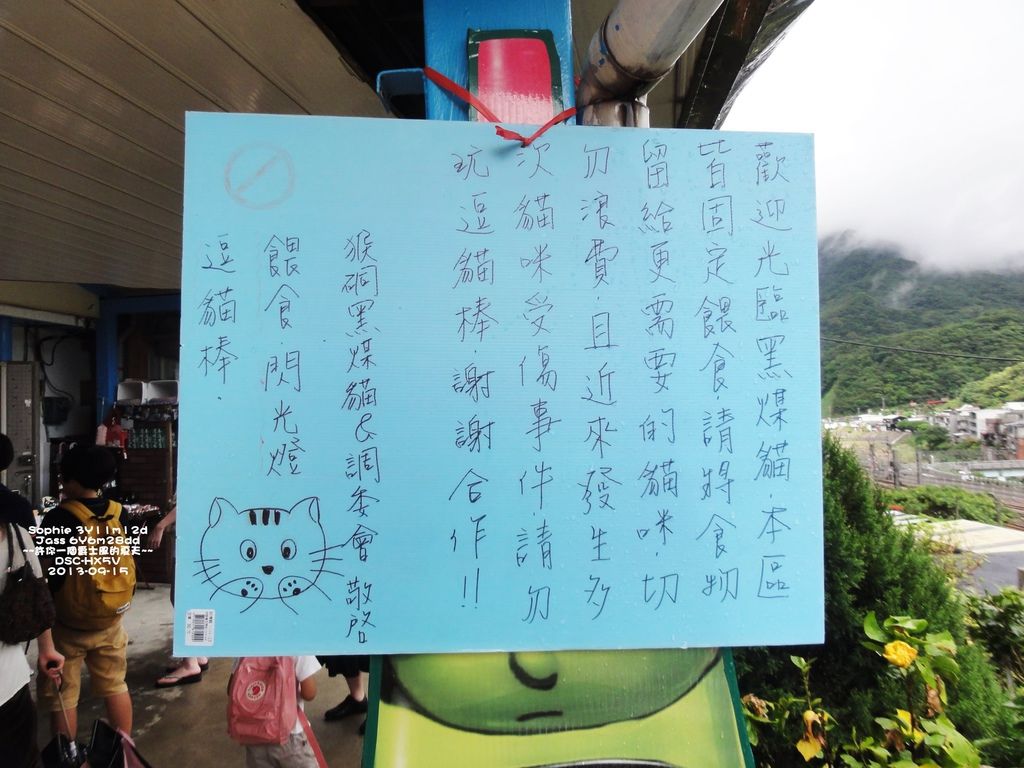 歡迎光臨黑煤貓.本區
皆固定餵食.請將食物
留給更需要的貓咪.切
勿浪費.且近來發生多
次貓咪受傷事件請勿
玩逗貓棒.謝謝合作!!
猴硐黑煤貓&調委會 敬啓
餵食.閃光燈
逗貓棒.
Sophie 3Y11m12d
Jass 6Y6m28dd
~~許你一個爵士風的夏天~~
DSC-HX5V
2013-09-15